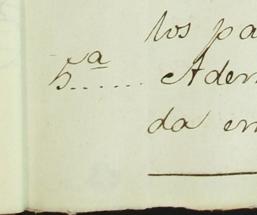 los pa
5ª...... Adem
da en